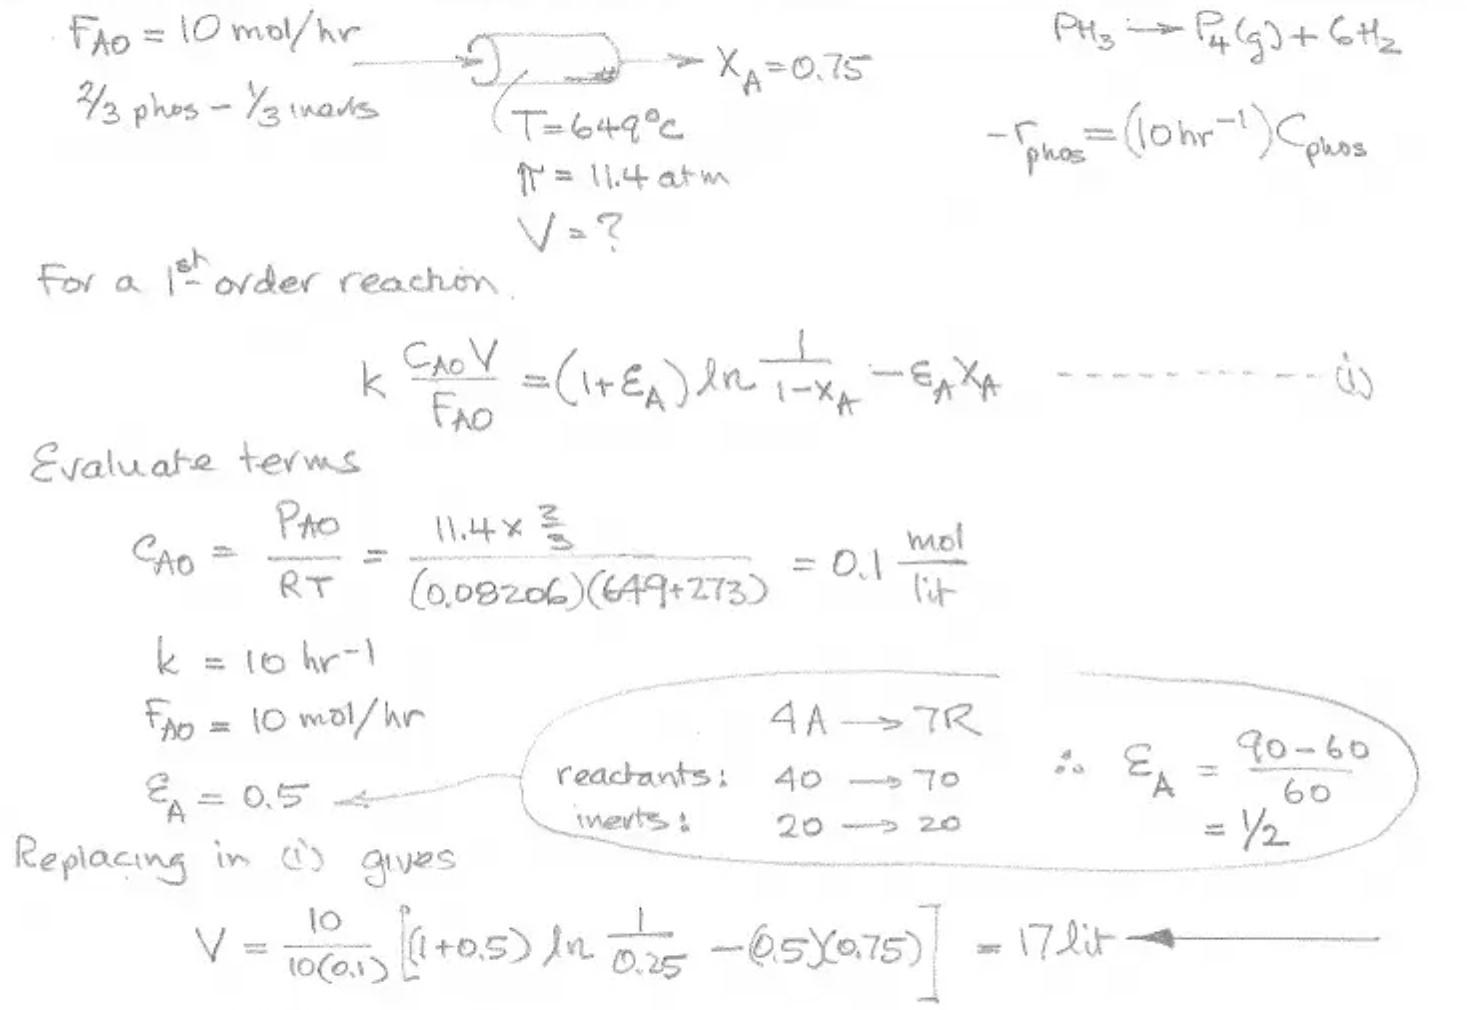 F_AO = 10 mol/hr
2/3 phos - 1/3 inerts
X_A = 0.75
T = 649°C
π = 11.4 atm
V = ?
PH3 → P4(g) + 6H2
-r_phos = (10 hr^-1) C_phos
For a 1st order reaction.
k C_AO V / F_AO = (1+ε_A) ln 1/(1-X_A) - ε_A X_A ---------- (i)
Evaluate terms
C_AO = P_AO / RT = 11.4 x 2/3 / (0.08206)(649+273) = 0.1 mol/lit
k = 10 hr^-1
F_AO = 10 mol/hr
ε_A = 0.5
4A → 7R
reactants: 40 → 70
inerts: 20 → 20
∴ ε_A = 90-60 / 60
= 1/2
Replacing in (i) gives
V = 10 / 10(0.1) [(1+0.5) ln 1/0.25 - (0.5)(0.75)] = 17 lit